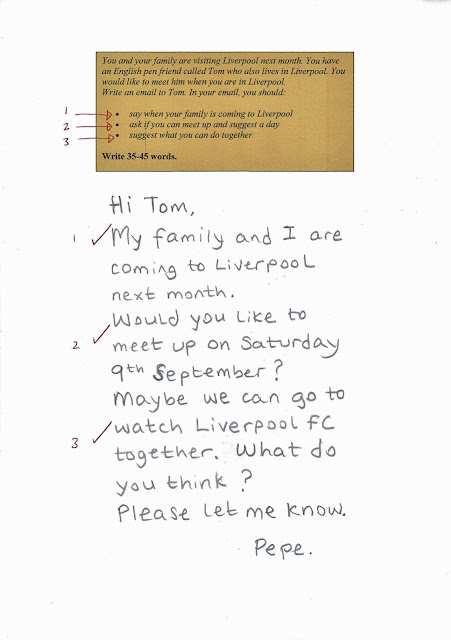 You and your family are visiting Liverpool next month. You have
an English pen friend called Tom who also lives in Liverpool. You
would like to meet him when you are in Liverpool.
Write an email to Tom. In your email, you should:
1 • say when your family is coming to Liverpool
2 • ask if you can meet up and suggest a day
3 • suggest what you can do together.
Write 35-45 words.
Hi Tom,
1 ✓ My family and I are
coming to Liverpool
next month.
Would you like to
2 ✓ meet up on Saturday
9th September?
Maybe we can go to
3 ✓ watch Liverpool FC
together. What do
you think?
Please let me know.
Pepe.